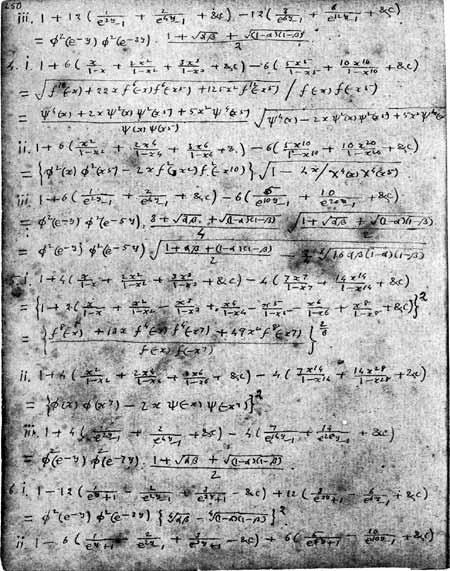 250
iii. 1 + 12 ( 1/(e^{2y}-1) + 2/(e^{4y}-1) + &c) - 12 ( 3/(e^{6y}-1) + 6/(e^{12y}-1) + &c)
= φ²(e^{-y}) φ²(e^{-3y}) · (1 + √αβ + √(1-α)(1-β))/2
4. i. 1 + 6 ( x/(1-x) + 2x²/(1-x²) + 3x³/(1-x³) + &c) - 6 ( 5x⁵/(1-x⁵) + 10x¹⁰/(1-x¹⁰) + &c)
= √( f¹²(-x) + 22x f⁶(-x) f⁶(-x⁵) + 125x² f¹²(-x⁵) ) / f(-x) f(-x⁵)
= (ψ⁴(x) + 2x ψ²(x) ψ²(x⁵) + 5x² ψ⁴(x⁵))/(ψ(x) ψ(x⁵)) √( ψ⁴(x) - 2x ψ²(x) ψ²(x⁵) + 5x² ψ⁴(x⁵) )
ii. 1 + 6 ( x²/(1-x²) + 2x⁴/(1-x⁴) + 3x⁶/(1-x⁶) + &) - 6 ( 5x¹⁰/(1-x¹⁰) + 10x²⁰/(1-x²⁰) + &c)
= { φ²(x) φ²(x⁵) - 2x f²(x²) f²(x¹⁰) } √( 1 - 4x/χ⁴(x) χ⁴(x⁵) )
iii. 1 + 6 ( 1/(e^{2y}-1) + 2/(e^{4y}-1) + &c) - 6 ( 5/(e^{10y}-1) + 10/(e^{20y}-1) + &c)
= φ²(e^{-y}) φ²(e^{-5y}) · (3 + √αβ + √(1-α)(1-β))/4 √( (1 + √αβ + √(1-α)(1-β))/2 )
= φ²(e^{-y}) φ²(e^{-5y}) √( (1 + αβ + (1-α)(1-β))/2 16αβ(1-α)(1-β) )
5. i. 1 + 4 ( x/(1-x) + 2x²/(1-x²) + 3x³/(1-x³) + &c) - 4 ( 7x⁷/(1-x⁷) + 14x¹⁴/(1-x¹⁴) + &c)
= { 1 + 2 ( x/(1-x) + x²/(1-x²) - x³/(1-x³) + x⁴/(1-x⁴) - x⁵/(1-x⁵) - x⁶/(1-x⁶) + x⁸/(1-x⁸) + &c) }²
= { ( f⁸(-x) + 13x f⁴(-x) f⁴(-x⁷) + 49x² f⁸(-x⁷) )/( f(-x) f(-x⁷) ) }^{2/3}
ii. 1 + 4 ( x²/(1-x²) + 2x⁴/(1-x⁴) + 3x⁶/(1-x⁶) + &c) - 4 ( 7x¹⁴/(1-x¹⁴) + 14x²⁸/(1-x²⁸) + &c)
= { φ(x) φ(x⁷) - 2x ψ(-x) ψ(-x⁷) }²
iii. 1 + 4 ( 1/(e^{2y}-1) + 2/(e^{4y}-1) + &c) - 4 ( 7/(e^{14y}-1) + 14/(e^{28y}-1) + &c)
= φ²(e^{-y}) φ²(e^{-7y}) · (1 + √αβ + √(1-α)(1-β))/2
6. i. 1 - 12 ( 1/(e^{y}+1) - 2/(e^{2y}-1) + 3/(e^{3y}+1) - &c) + 12 ( 3/(e^{3y}+1) - 6/(e^{6y}-1) + &c)
= φ²(e^{-y}) φ²(e^{-3y}) { ⁴√αβ - ⁴√(1-α)(1-β) }²
ii 1 - 6 ( 1/(e^{y}+1) - 2/(e^{2y}-1) + 3/(e^{3y}+1) - &c) + 6 ( 5/(e^{5y}+1) - 10/(e^{10y}-1) + &c)